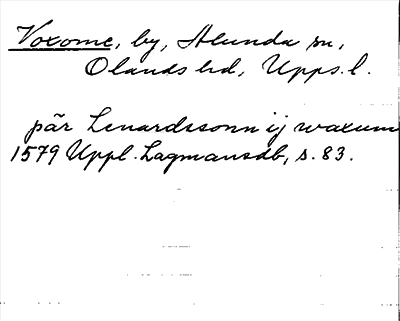 Voxome, by, Alunda sn,
Olands hd, Upps. l.
pär Lenardssonn ij waxum
1579 Uppl. Lagmansdb, s. 83.